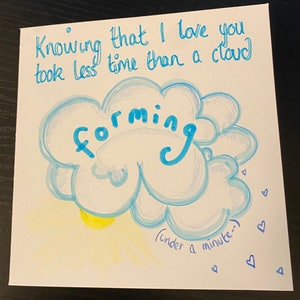 Knowing that I love you
took less time than a cloud
forming
(under a minute--)